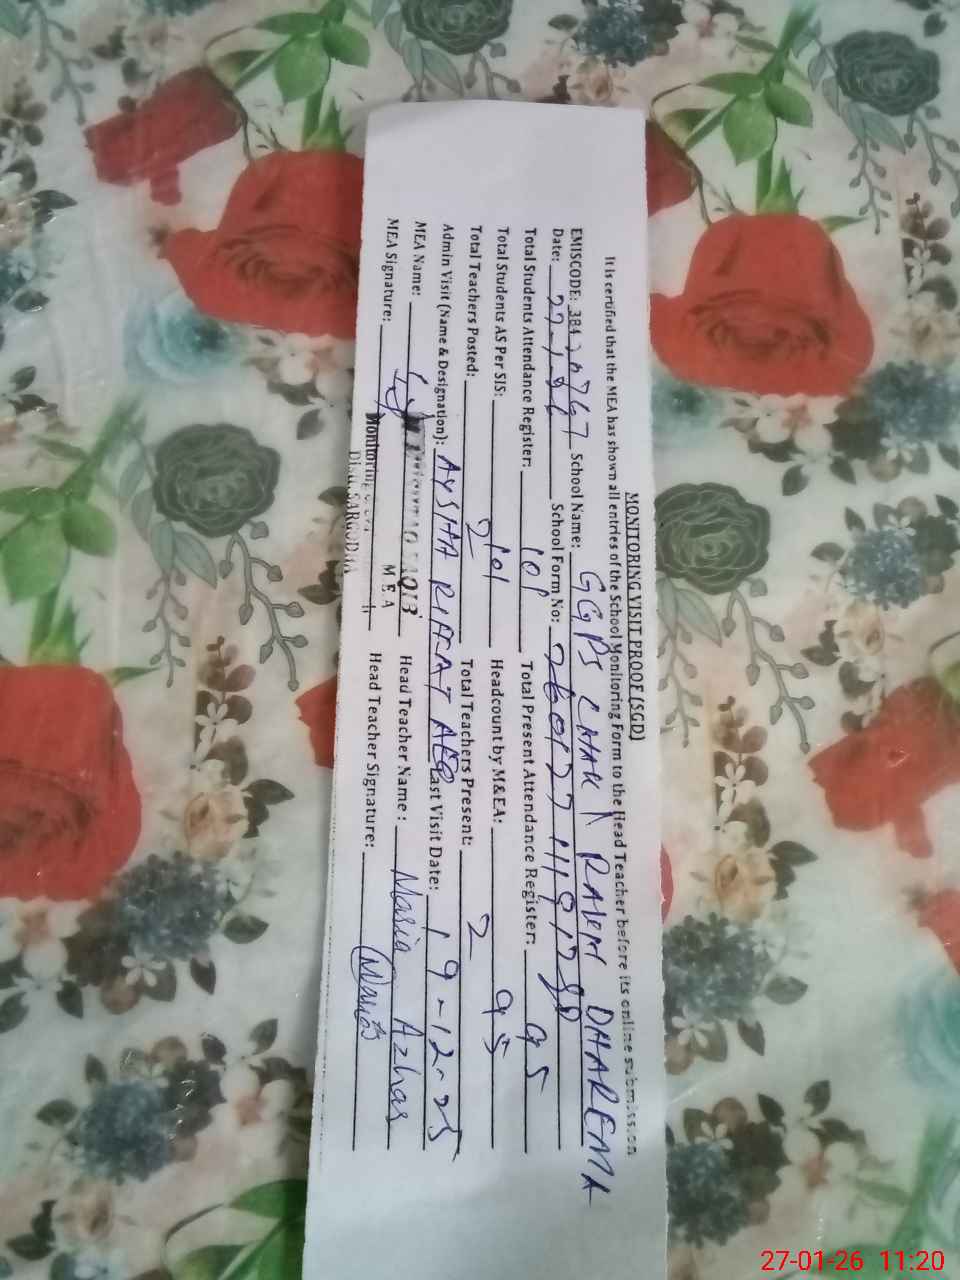 MONITORING VISIT PROOF (SGD)
It is certified that the MEA has shown all entries of the School Monitoring Form to the Head Teacher before its online submission
EMISCODE: 384 School Name: GGPS CHAK RALEM DHAREMA
Date: 27-1-26 School Form No:
Total Students Attendance Register: 101 Total Present Attendance Register: 95
Total Students AS Per SIS: 101 Headcount by M&EA: 95
Total Teachers Posted: 2 Total Teachers Present: 2
Admin Visit (Name & Designation): AYSHA RIFFAT AEO Last Visit Date: 19-12-25
MEA Name: Head Teacher Name: Maria Azhar
M.E.A
MEA Signature: Head Teacher Signature: Maria
Monitoring
Distt. SARGODHA
27-01-26 11:20